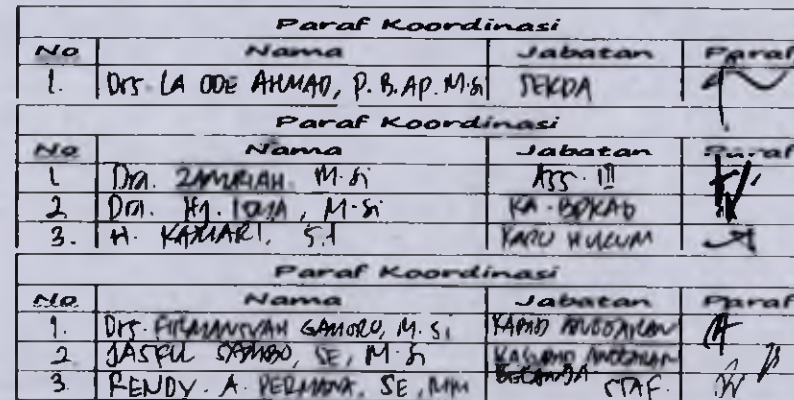 Paraf Koordinasi
No Nama Jabatan Paraf
1. Drs. LA ODE AHMAD, P. B. AP. M.Si SEKDA
Paraf Koordinasi
No Nama Jabatan Paraf
1 Dra. M.Si ASS. III
2 Dra. Hj. M.Si KA. BPKAD
3. H. KAMARI, KARO HUKUM
Paraf Koordinasi
No Nama Jabatan Paraf
1. Drs. FIRMANSYAH GAMORU, M. Si KABID ANGGARAN
2 JASFUL SE, M.Si ANGGARAN
BELANJA
3. RENDY. A. PERMANA, SE, MM STAF.